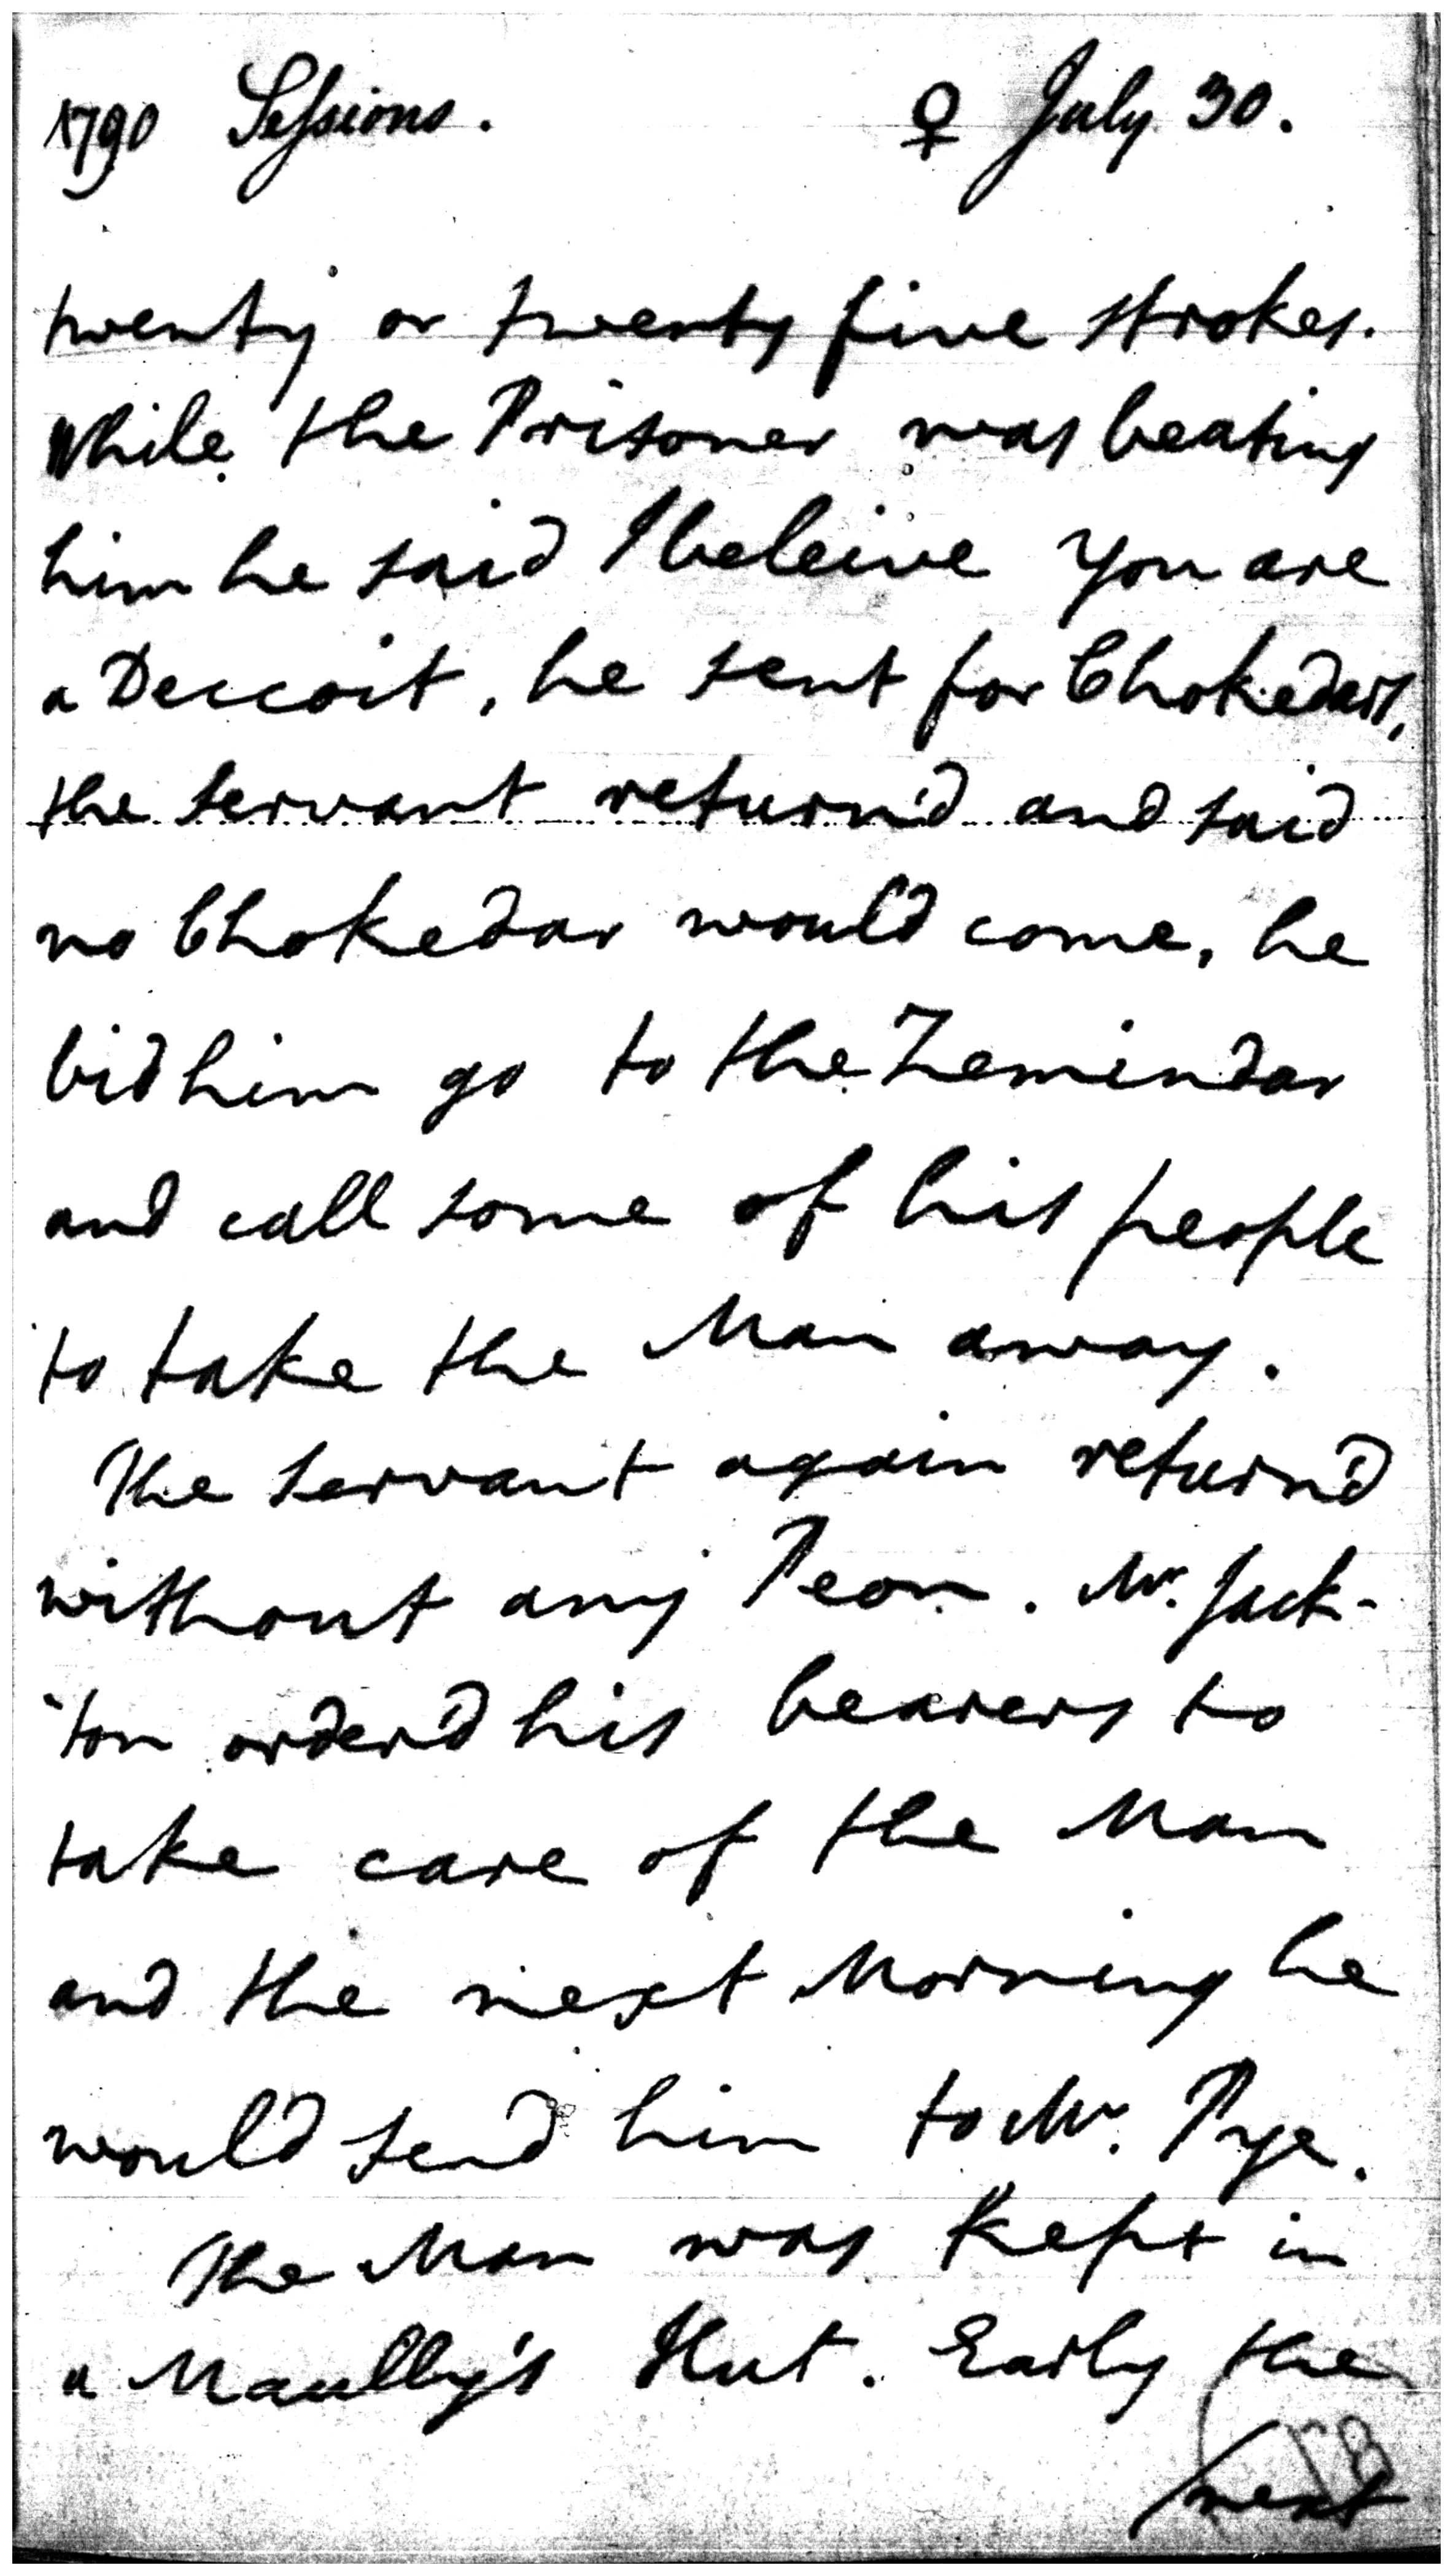 1790 Sessions. ♀ July 30.
twenty or twenty five strokes.
While the Prisoner was beating
him he said I beleive you are
a Deccoit, he sent for Chokedars,
the servant return'd and said
no Chokedar would come, he
bid him go to the Zemindar
and call some of his people
to take the Man away.
The servant again return'd
without any Peon. Mr. Jack-
son order'd his bearers to
take care of the Man
and the next Morning he
would send him to Mr. Pye.
The Man was kept in
a Maully's Hut. Early the
next